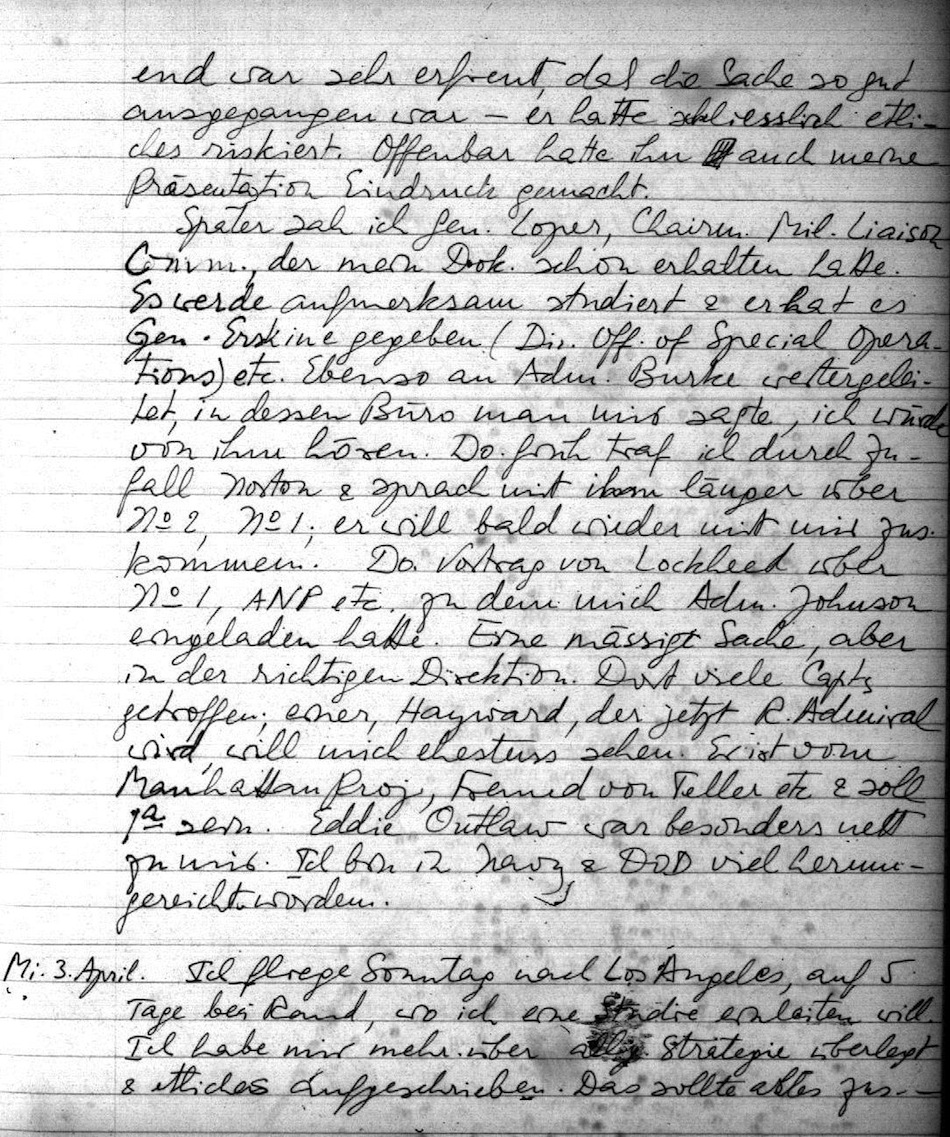 end war sehr erfreut, daß die Sache so gut
ausgegangen war – er hatte schliesslich etli-
ches riskiert. Offenbar hatte ihn auch meine
Präsentation Eindruck gemacht.
Später sah ich Gen. Loper, Chairm. Mil. Liaison
Comm., der mein Dok. schon erhalten hatte.
Es werde aufmerksam studiert & er hat es
Gen. Erskine gegeben (Dir. Off. of Special Opera-
tions) etc. Ebenso an Adm. Burke weitergelei-
tet, in dessen Büro man mir sagte, ich würde
von ihm hören. Do. früh traf ich durch Zu-
fall Norton & sprach mit ihm länger über
No 2, No 1; er will bald wieder mit mir zus.
kommen. Do. Vortrag von Lockheed über
No 1, ANP etc. zu dem mich Adm. Johnson
eingeladen hatte. Eine mässige Sache, aber
in der richtigen Direktion. Dort viele Capts
getroffen; einer, Hayward, der jetzt R. Admiral
wird, will mich ehestens sehen. Er ist vom
Manhattan Proj., Freund von Teller etc & soll
1a sein. Eddie Outlaw war besonders nett
zu mir. Ich bin in Navy & DOD viel herum-
gereicht worden.
Mi. 3. April. Ich fliege Sonntag nach Los Angeles, auf 5
Tage bei Rand, wo ich eine Studie einleiten will.
Ich habe mir mehr über allg. Strategie überlegt
& etliches aufgeschrieben. Das sollte alles zus.-